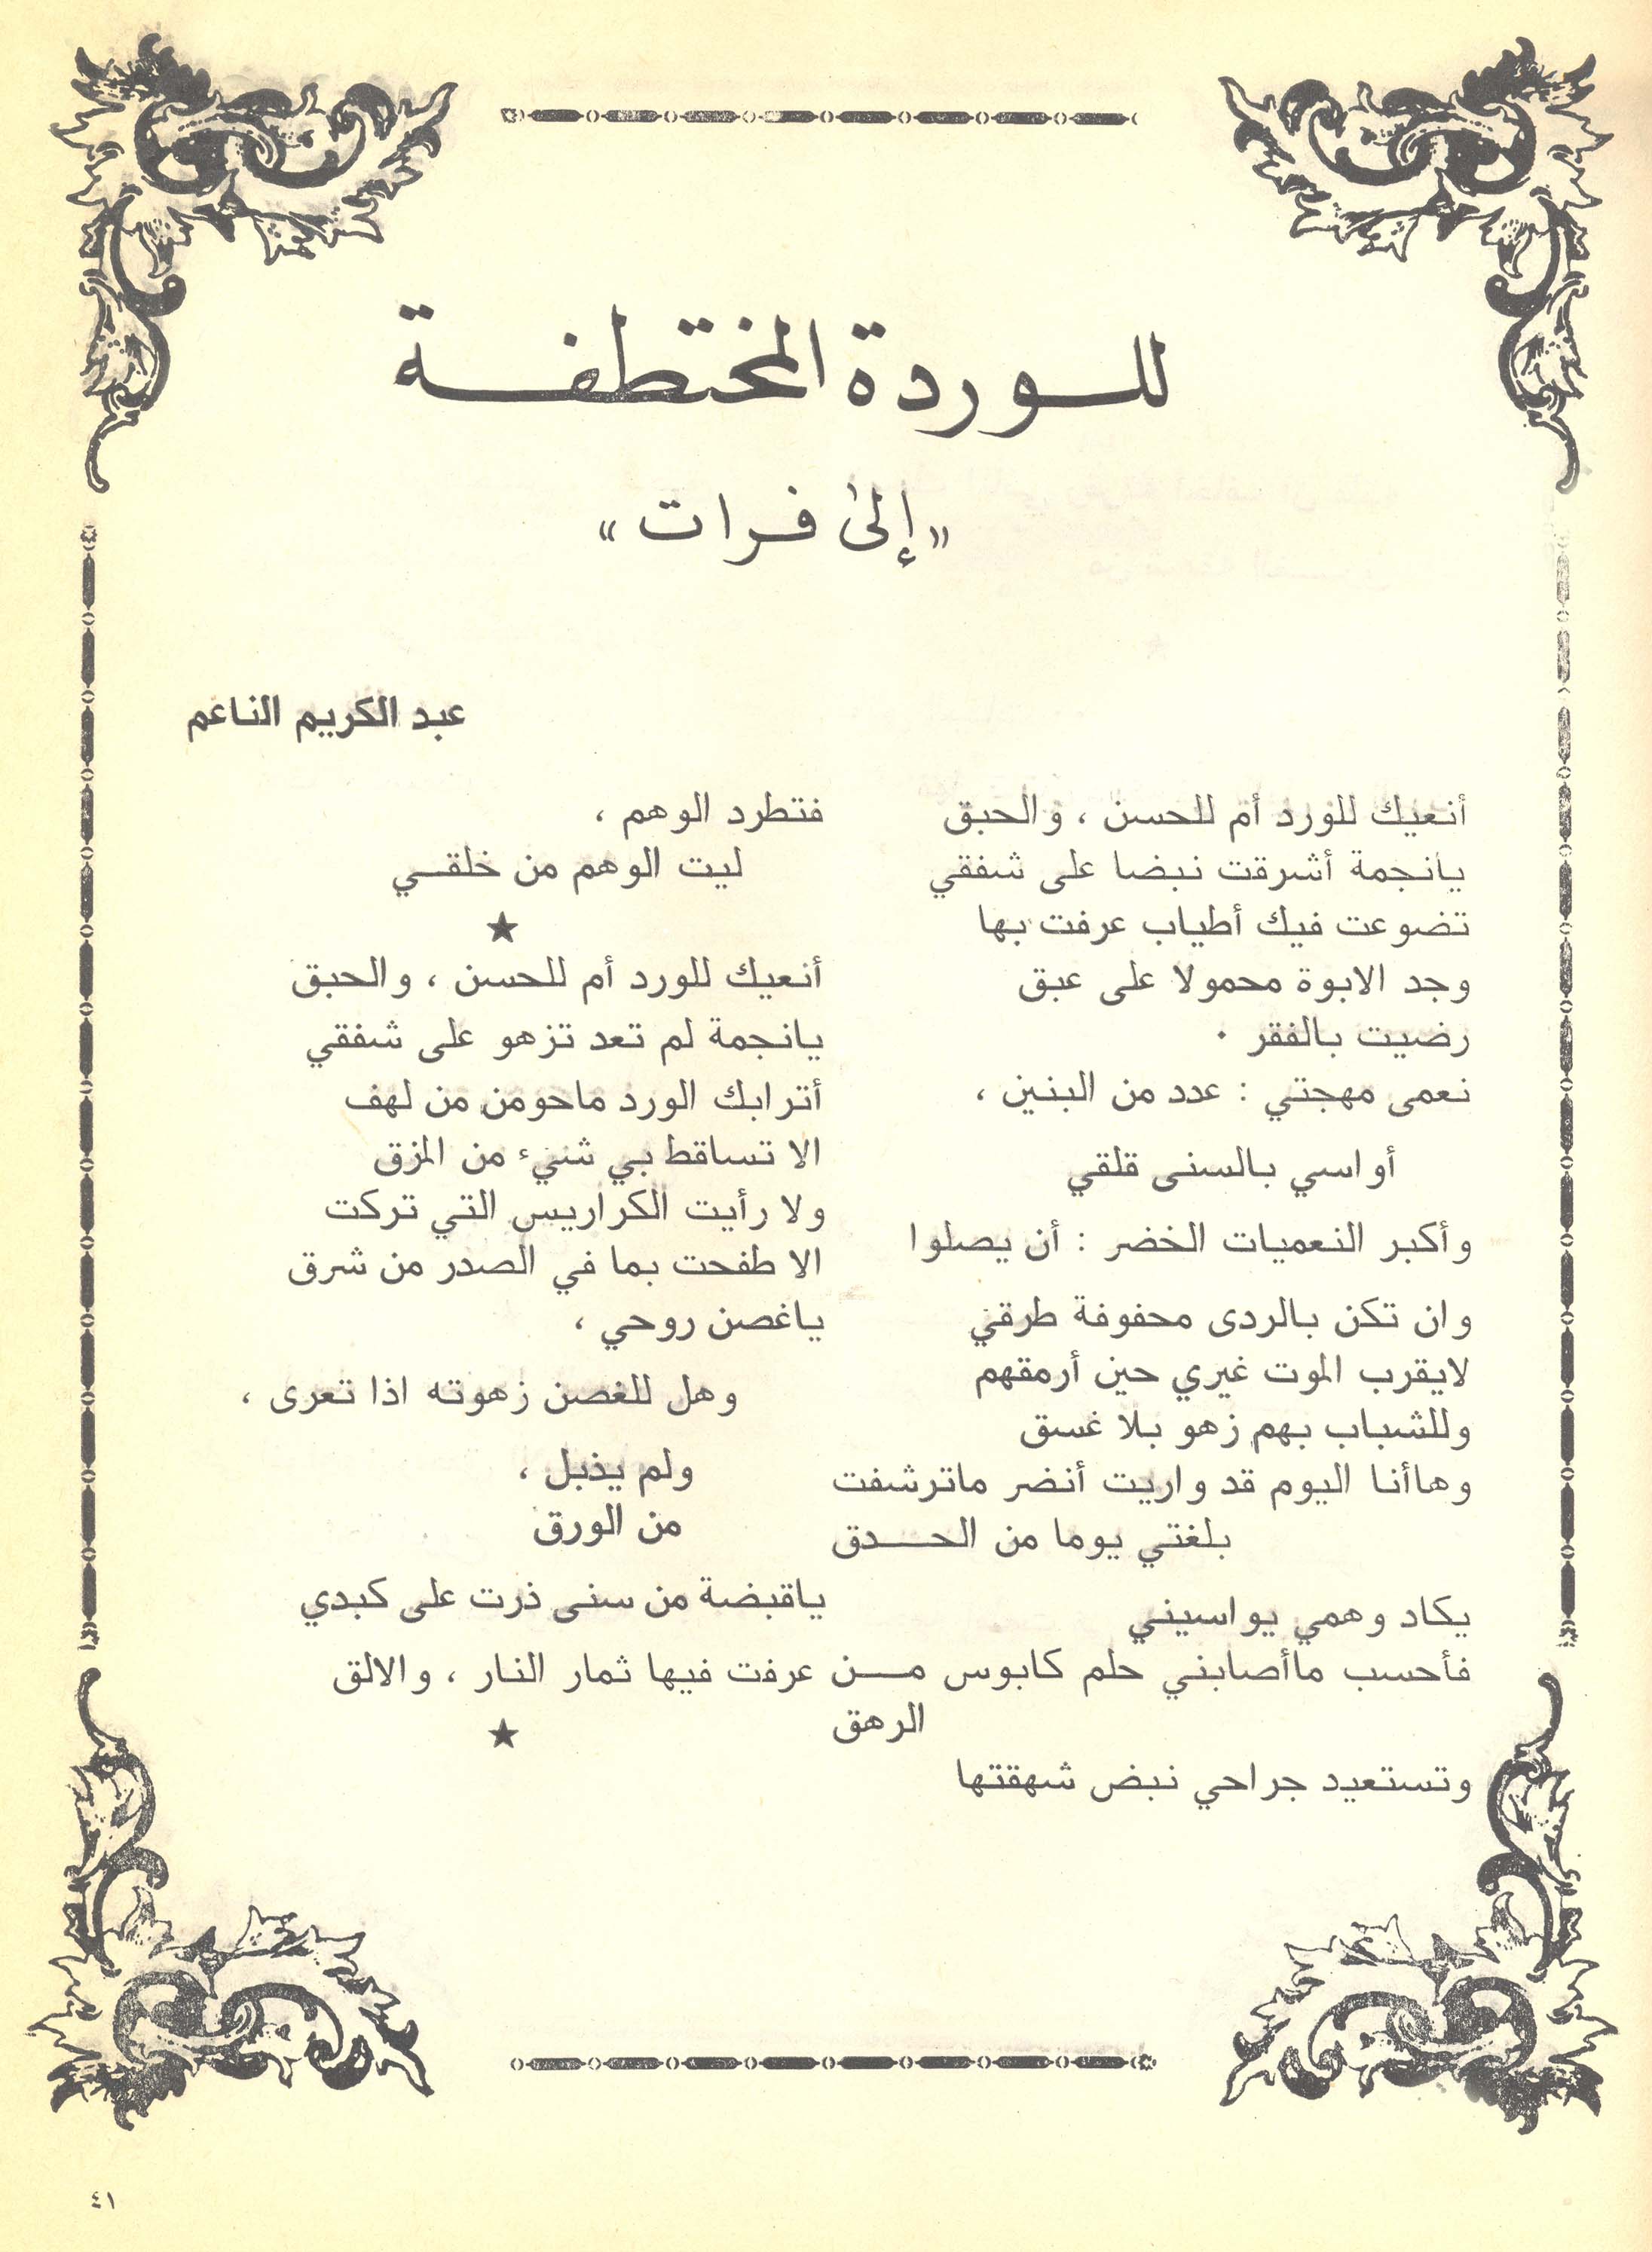 للوردة المختطفة
«إلىٰ فرات»
عبد الكريم الناعم
أنعيك للورد أم للحسن ، والحبق
يانجمة أشرقت نبضا على شفقي
تضوعت فيك أطياب عرفت بها
وجد الابوة محمولا على عبق
رضيت بالفقر ٠
نعمى مهجتي : عدد من البنين ،
أواسي بالسنى قلقي
وأكبر النعميات الخضر : أن يصلوا
وان تكن بالردى محفوفة طرقي
لايقرب الموت غيري حين أرمقهم
وللشباب بهم زهو بلا غسق
وهاأنا اليوم قد واريت أنضر ماترشفت
بلغتي يوما من الحدق
يكاد وهمي يواسيني
فأحسب ماأصابني حلم كابوس من
الرهق
وتستعيد جراحي نبض شهقتها
فتطرد الوهم ،
ليت الوهم من خلقي
★
أنعيك للورد أم للحسن ، والحبق
يانجمة لم تعد تزهو على شفقي
أترابك الورد ماحومن من لهف
الا تساقط بي شيء من المزق
ولا رأيت الكراريس التي تركت
الا طفحت بما في الصدر من شرق
ياغصن روحي ،
وهل للغصن زهوته اذا تعرى ،
ولم يذبل ،
من الورق
ياقبضة من سنى ذرت على كبدي
عرفت فيها ثمار النار ، والالق
★
٤١